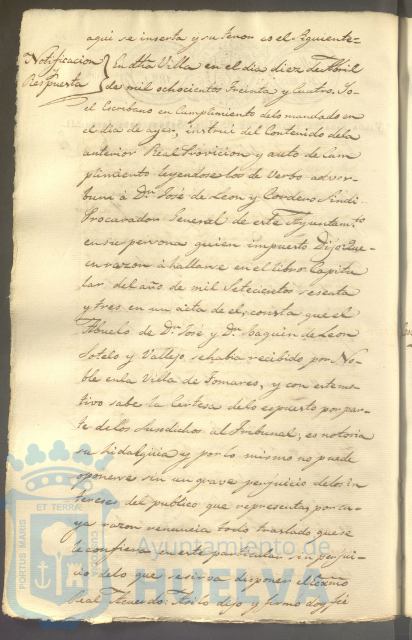 aqui se inserta y su tenor es el siguiente
Notificacion
Respuesta
En dha Villa en el dia diez de Abril
de mil ochocientos treinta y cuatro. Yo
el Escribano en Cumplimiento delo mandado en
el dia de ayer, instrui del Contenido dela
anterior Real Provicion y auto de Cum
plimiento leyendoselos de Verbo adver
bum à Dn. José de Leon y Cordero Sindi-
Procurador General de este Ayuntamto
en su persona quien impuesto Dijo: Que
en razon à hallarse en el libro Capitu
lar del año de mil Setecientos sesenta
y tres en un acta de el, consta que el
Abuelo de Dn. José y Dn. Joaquin de Leon
Sotelo y Vallejo, se habia recibido por No-
ble en la Villa de Tomares, y con este mo-
tivo sabe la Certesa delo espuesto por par-
te delos Susodichos al Tribunal, es notoria
su hidalguia y por lo mismo no puede
oponerse sin un grave perjuicio delos in
tereses del publico que representa; por cu-
ya razon renuncia todo traslado que se
le confiera en este particular, sin perjui-
cio delo que se sirva disponer el
Real Acuerdo: Asi lo dijo y firmo doy fé
PORTUS MARIS
ET TERRÆ
CUSTODIA
Ayuntamiento de
HUELVA